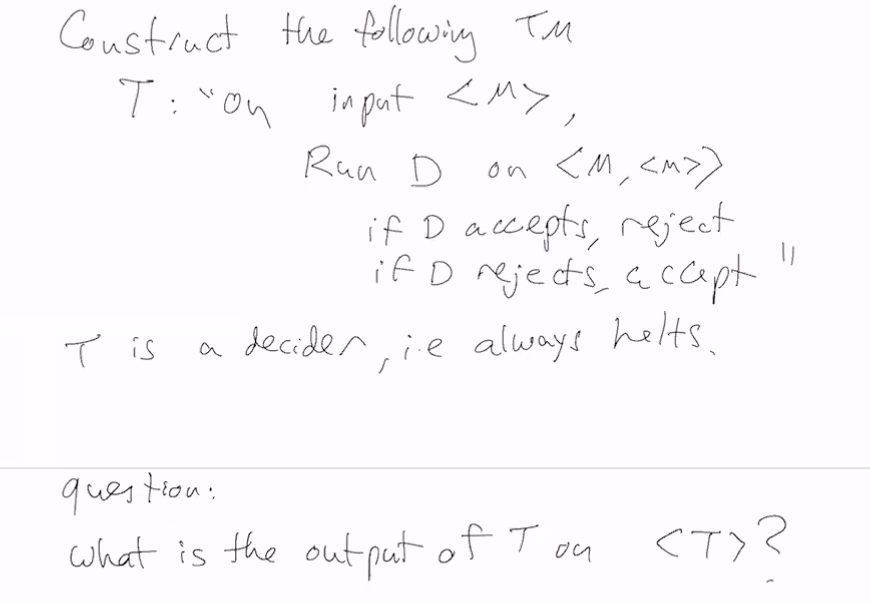 Construct the following TM
T: "on input <M>,
Run D on <M, <M>>
if D accepts, reject
if D rejects, accept "
T is a decider, i.e always halts.
question:
what is the output of T on <T>?